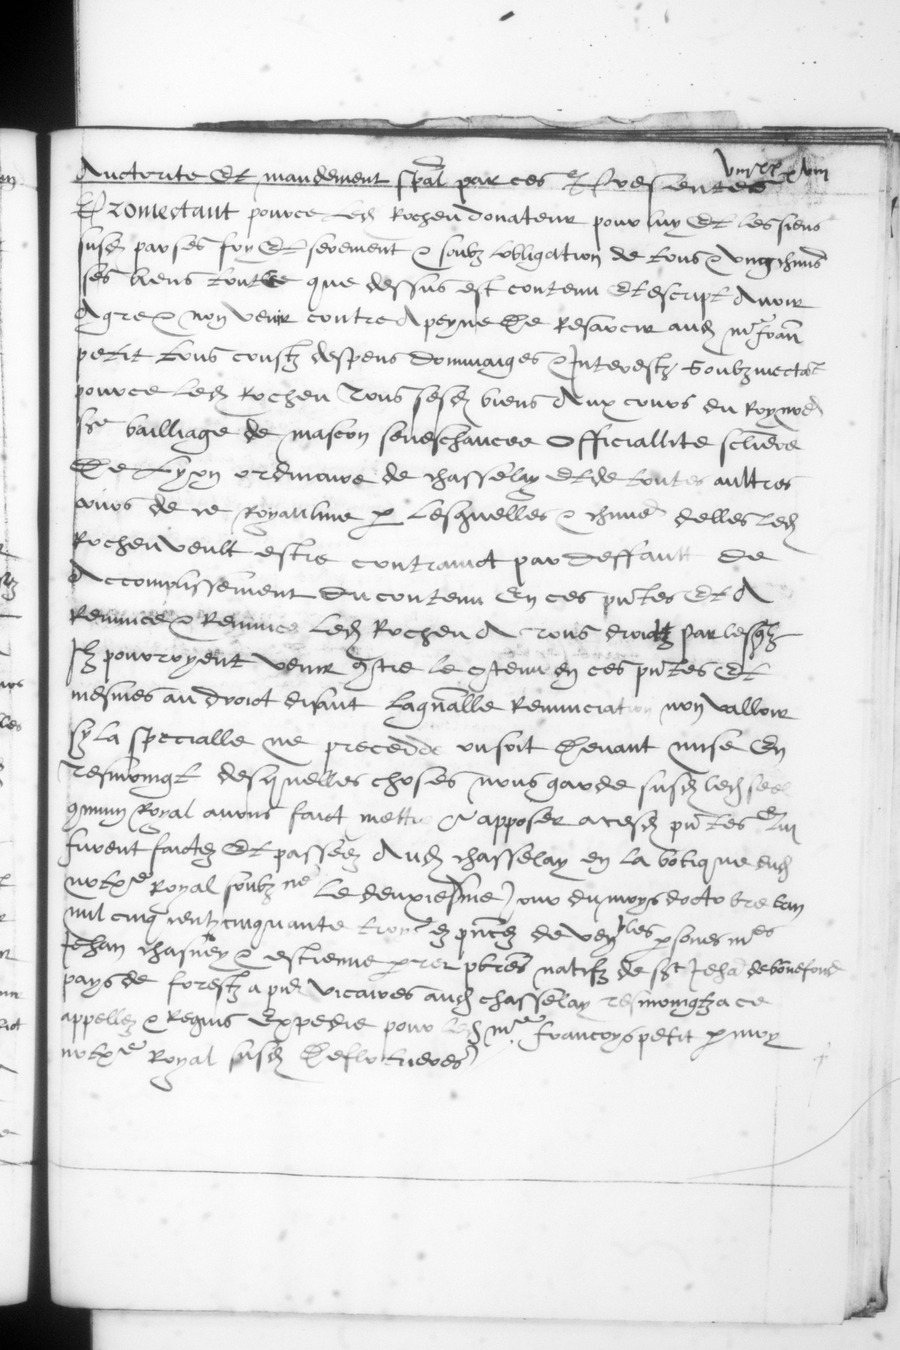 iiii^xx xviii
Auctorite Et mandement spal par ces presentes
Promectant pource led Rochen donateur pour luy Et les siens
susd par ses foy Et serement & soubz lobligation de tous & ung chuns
ses biens tout ce que dessus est contenu Et escript Avoir
Agre & non venir contre A peyne De Resarcir aud m^e Fran
petit tous coustz despens dommaiges & Interestz Soubzmectat
pource led Rochen Tous sesd biens Aux cours du Roy nred
s^r bailliage de mascon seneschaucee Officiallite
De Lyon ordinaire de chasselay Et de toutes aultres
cours de ce Royaulme p lesquelles & chune delles led
Rochen veult estre contrainct par deffault De
Accomplissement Du contenu En ces pntes Et A
Renunce & Renunce led Rochen A Tous droictz par lesqlz
Ilz pourroyent venir cotre le cotenu en ces pntes Et
mesmes au droict disant la gnalle Renunciation non valloir
sy la specialle ne precedde ou soit Devant mise En
Tesmoingt desquelles choses nous garde susd led seel
comun Royal avons faict mettre & apposer a cesd pntes Qui
furent faictez Et passeez Aud chasselay en la botique dud
not^re Royal soubz ne Le deuxiesme jour du moys doctobre lan
mil cinq centz cinquante troys ez pncez de ven^bles psones m^es
Jehan & estienne pbres natifz de s^t Jehan de bonnefond
pays de forestz a pnt vicaires aud chasselay tesmoingtz a ce
appellez & Requis Expedie pour led m^e francoys petit p moy
not^re Royal susd Deflotieres